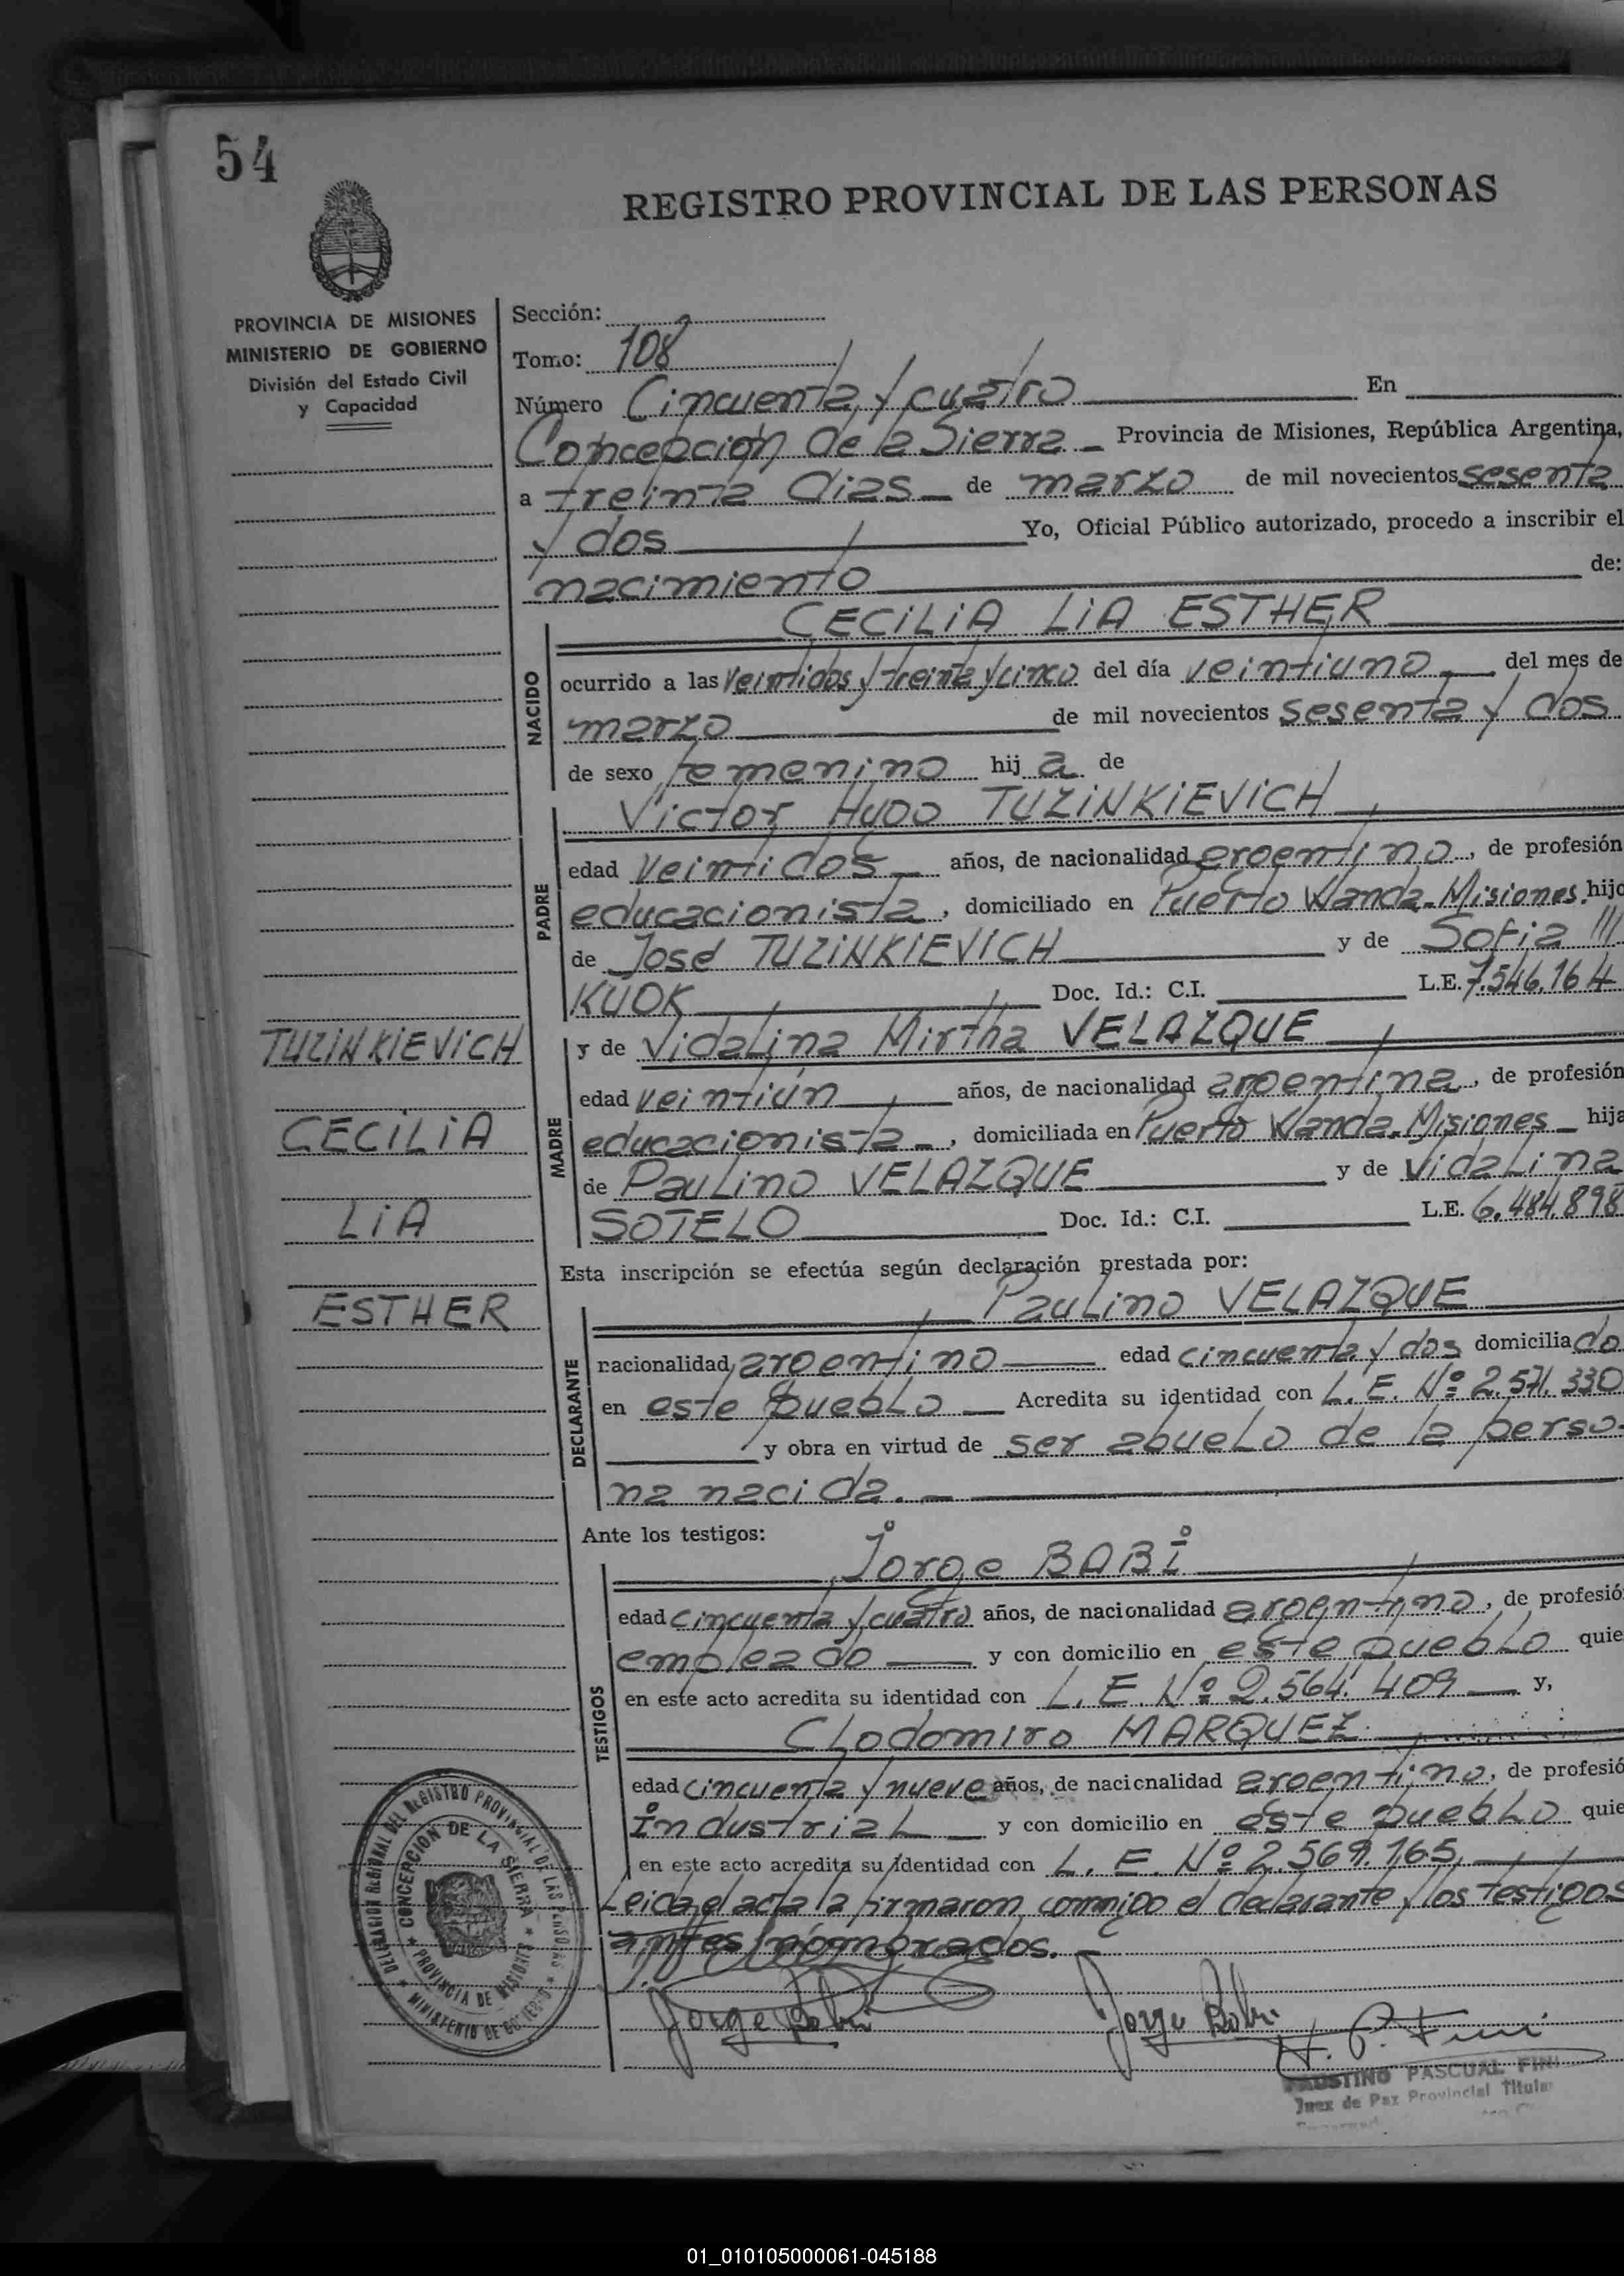 54
REGISTRO PROVINCIAL DE LAS PERSONAS
PROVINCIA DE MISIONES
MINISTERIO DE GOBIERNO
División del Estado Civil
y Capacidad
Sección:
Tomo: 108
Número Cincuenta y cuatro En
Concepción de la Sierra Provincia de Misiones, República Argentina,
a treinta dias de marzo de mil novecientos sesenta
y dos Yo, Oficial Público autorizado, procedo a inscribir el
nacimiento de:
CECILIA LIA ESTHER
NACIDO
ocurrido a las veintidos y treinta y cinco del día veintiuno del mes de
marzo de mil novecientos sesenta y dos
de sexo femenino hij a de
Victor Hugo TUZINKIEVICH
PADRE
edad veintidos años, de nacionalidad argentino, de profesión
educacionista, domiciliado en Puerto Wanda-Misiones. hijo
de José TUZINKIEVICH y de Sofia
KUOK Doc. Id.: C.I. L.E. 7.546.164
y de Vidalina Mirtha VELAZQUE
MADRE
edad veintiún años, de nacionalidad argentina, de profesión
educacionista, domiciliada en Puerto Wanda-Misiones hija
de Paulino VELAZQUE y de Vidalina
SOTELO Doc. Id.: C.I. L.E. 6.484.898
TUZINKIEVICH
CECILIA
LIA
ESTHER
Esta inscripción se efectúa según declaración prestada por:
Paulino VELAZQUE
DECLARANTE
nacionalidad argentino edad cincuenta y dos domiciliado
en este pueblo Acredita su identidad con L. E. Nº 2.571.330
y obra en virtud de ser abuelo de la perso-
na nacida.
Ante los testigos:
Jorge BABI
TESTIGOS
edad cincuenta y cuatro años, de nacionalidad argentino, de profesió
empleado y con domicilio en este pueblo quie
en este acto acredita su identidad con L. E. Nº 2.564.409 y,
Clodomiro MARQUEZ
edad cincuenta y nueve años, de nacionalidad argentino, de profesió
Industrial y con domicilio en este pueblo quie
en este acto acredita su identidad con L. E. Nº 2.569.165
Leida el acta la firmaron conmigo el declarante y los testigos
antes nombrados.
DELEGACION REGIONAL DEL REGISTRO PROVINCIAL DE LAS PERSONAS
CONCEPCION DE LA SIERRA
PROVINCIA DE MISIONES
MINISTERIO DE GOBIERNO
Jorge
Jorge
FAUSTINO PASCUAL FINI
Juez de Paz Provincial Titular
01_010105000061-045188